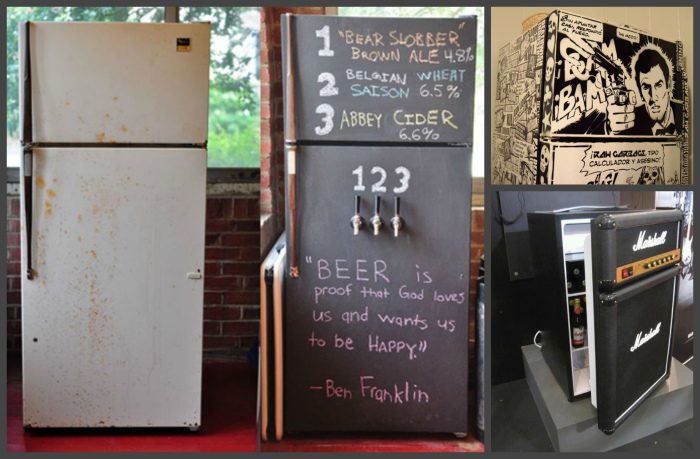 1 "BEAR SLOBBER"
BROWN ALE 4.8%
2 BELGIAN WHEAT
SAISON 6.5%
3 ABBEY CIDER
6.6%
1 2 3
"BEER is
proof that God loves
us and wants us
to be HAPPY."
—Ben Franklin
SIN APUNTAR
CASI, RESPONDIÓ
AL FUEGO.
¡BAM!
CALCULADOR Y ASESINO!
Marshall
Marshall